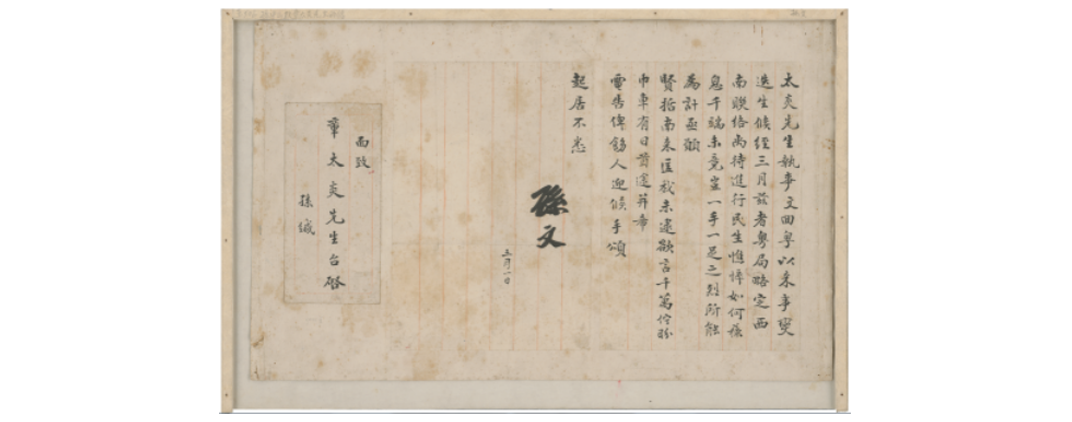 太炎先生執事文回粵以來事變
迭生倏經三月茲者粵局略定西
南聯絡尚待進行民生憔悴如何蘇
息千端未竟豈一手一足之烈所能
為計亟願
賢哲南來匡我未逮欲言千萬佇盼
巾車有日首途并希
電告俾飭人迎候手頌
起居不悉
孫文
三月一日
面致
章太炎先生台啓
孫緘